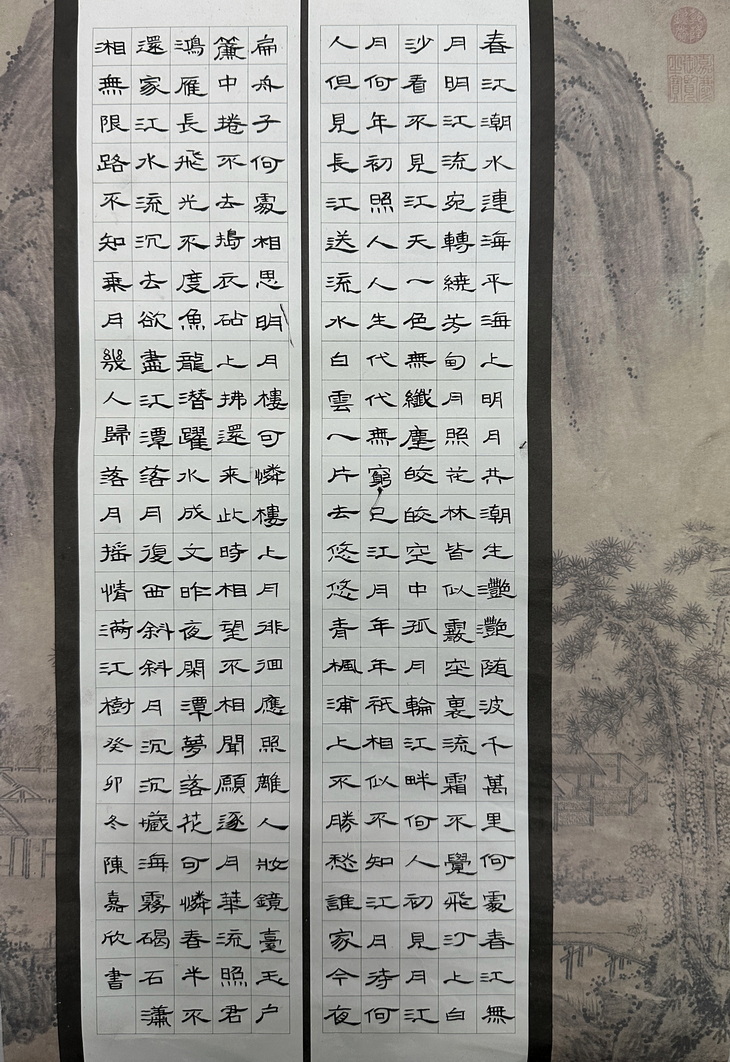 春江潮水連海平海上明月共潮生灩灩随波千萬里何處春江無
月明江流宛轉繞芳甸月照花林皆似霰空裏流霜不覺飛汀上白
沙看不見江天一色無纖塵皎皎空中孤月輪江畔何人初見月江
月何年初照人人生代代無窮已江月年年祇相似不知江月待何
人但見長江送流水白雲一片去悠悠青楓浦上不勝愁誰家今夜
扁舟子何處相思明月樓可憐樓上月徘徊應照離人妝鏡臺玉户
簾中捲不去搗衣砧上拂還来此時相望不相聞願逐月華流照君
鴻雁長飛光不度魚龍潜躍水成文昨夜閑潭夢落花可憐春半不
還家江水流沉去欲盡江潭落月復西斜斜月沉沉藏海霧碣石瀟
湘無限路不知乘月幾人歸落月摇情满江樹癸卯冬陳嘉欣書